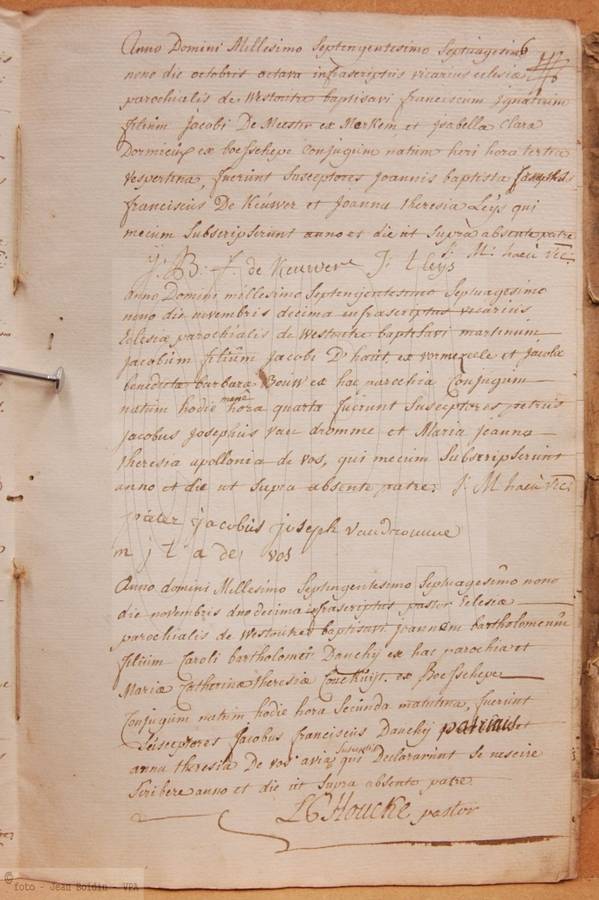 Anno Domini Millesimo Septengentesimo Septuagesimo
nono die octobris octava infrascriptus vicarius eclesiæ
parochialis de Westoutre baptisavi franciscum ignatium
filium Jacobi De Meester ex Merkem et isabella Clara
ex boesschepe Conjugum natum heri hora tertia
vespertina, fuerunt Susceptores Joannis baptista
franciscus De Keuwer et Joanna Theresia Leys qui
mecum Subscripserunt anno et die ut Supra absente patre
J: M: haeu vic:
J: B: f. de Keuwere J: t leys
anno Domini millesimo Septengentesimo Septuagesimo
nono die novembris decima infrascriptus vicarius
Eclesiæ parochialis de Westoutre baptisavi martinum
Jacobum filium Jacobi D'haut, ex vormezele et Jacobæ
benedicta barbara Bouw ex hac parochia Conjugum
natum hodie mane hora quarta fuerunt Susceptores petrus
Jacobus Josephus van dromme et Maria Jeanna
theresia apollonia de vos, qui mecum Subscripserunt
anno et die ut supra absente patre: J: M haeu vic:
pieter Jacobus joseph vandromme
m j t a de vos
Anno domini Millesimo Septingentesimo Septuagesimo nono
die novembris duodecima infrascriptus pastor Eclesiæ
parochialis de Westoutre baptisavi Joannem bartholomeum
filium Caroli bartholomei Dauchy ex hac parochia et
Mariæ Catherinæ theresiæ ex Boesschepe
Conjugum natum hodie hora Secunda matutina, fuerunt
Susceptores Jacobus franciscus Dauchy patruus et
anna theresia De vos avia Susceptis qui Declararunt se nescire
Scribere anno et die ut Supra absente patre
L C Houcke pastor
© foto - Jean Boidin - VPA